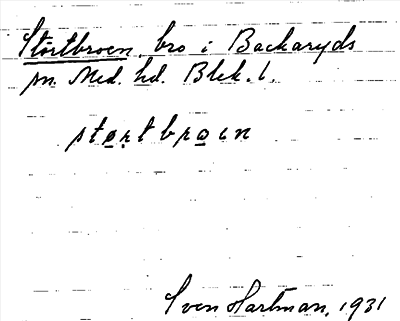 Störtbroen, bro i Backaryds
sn. Med. hd. Blek. l.
størtbroen
Sven Hartman, 1931